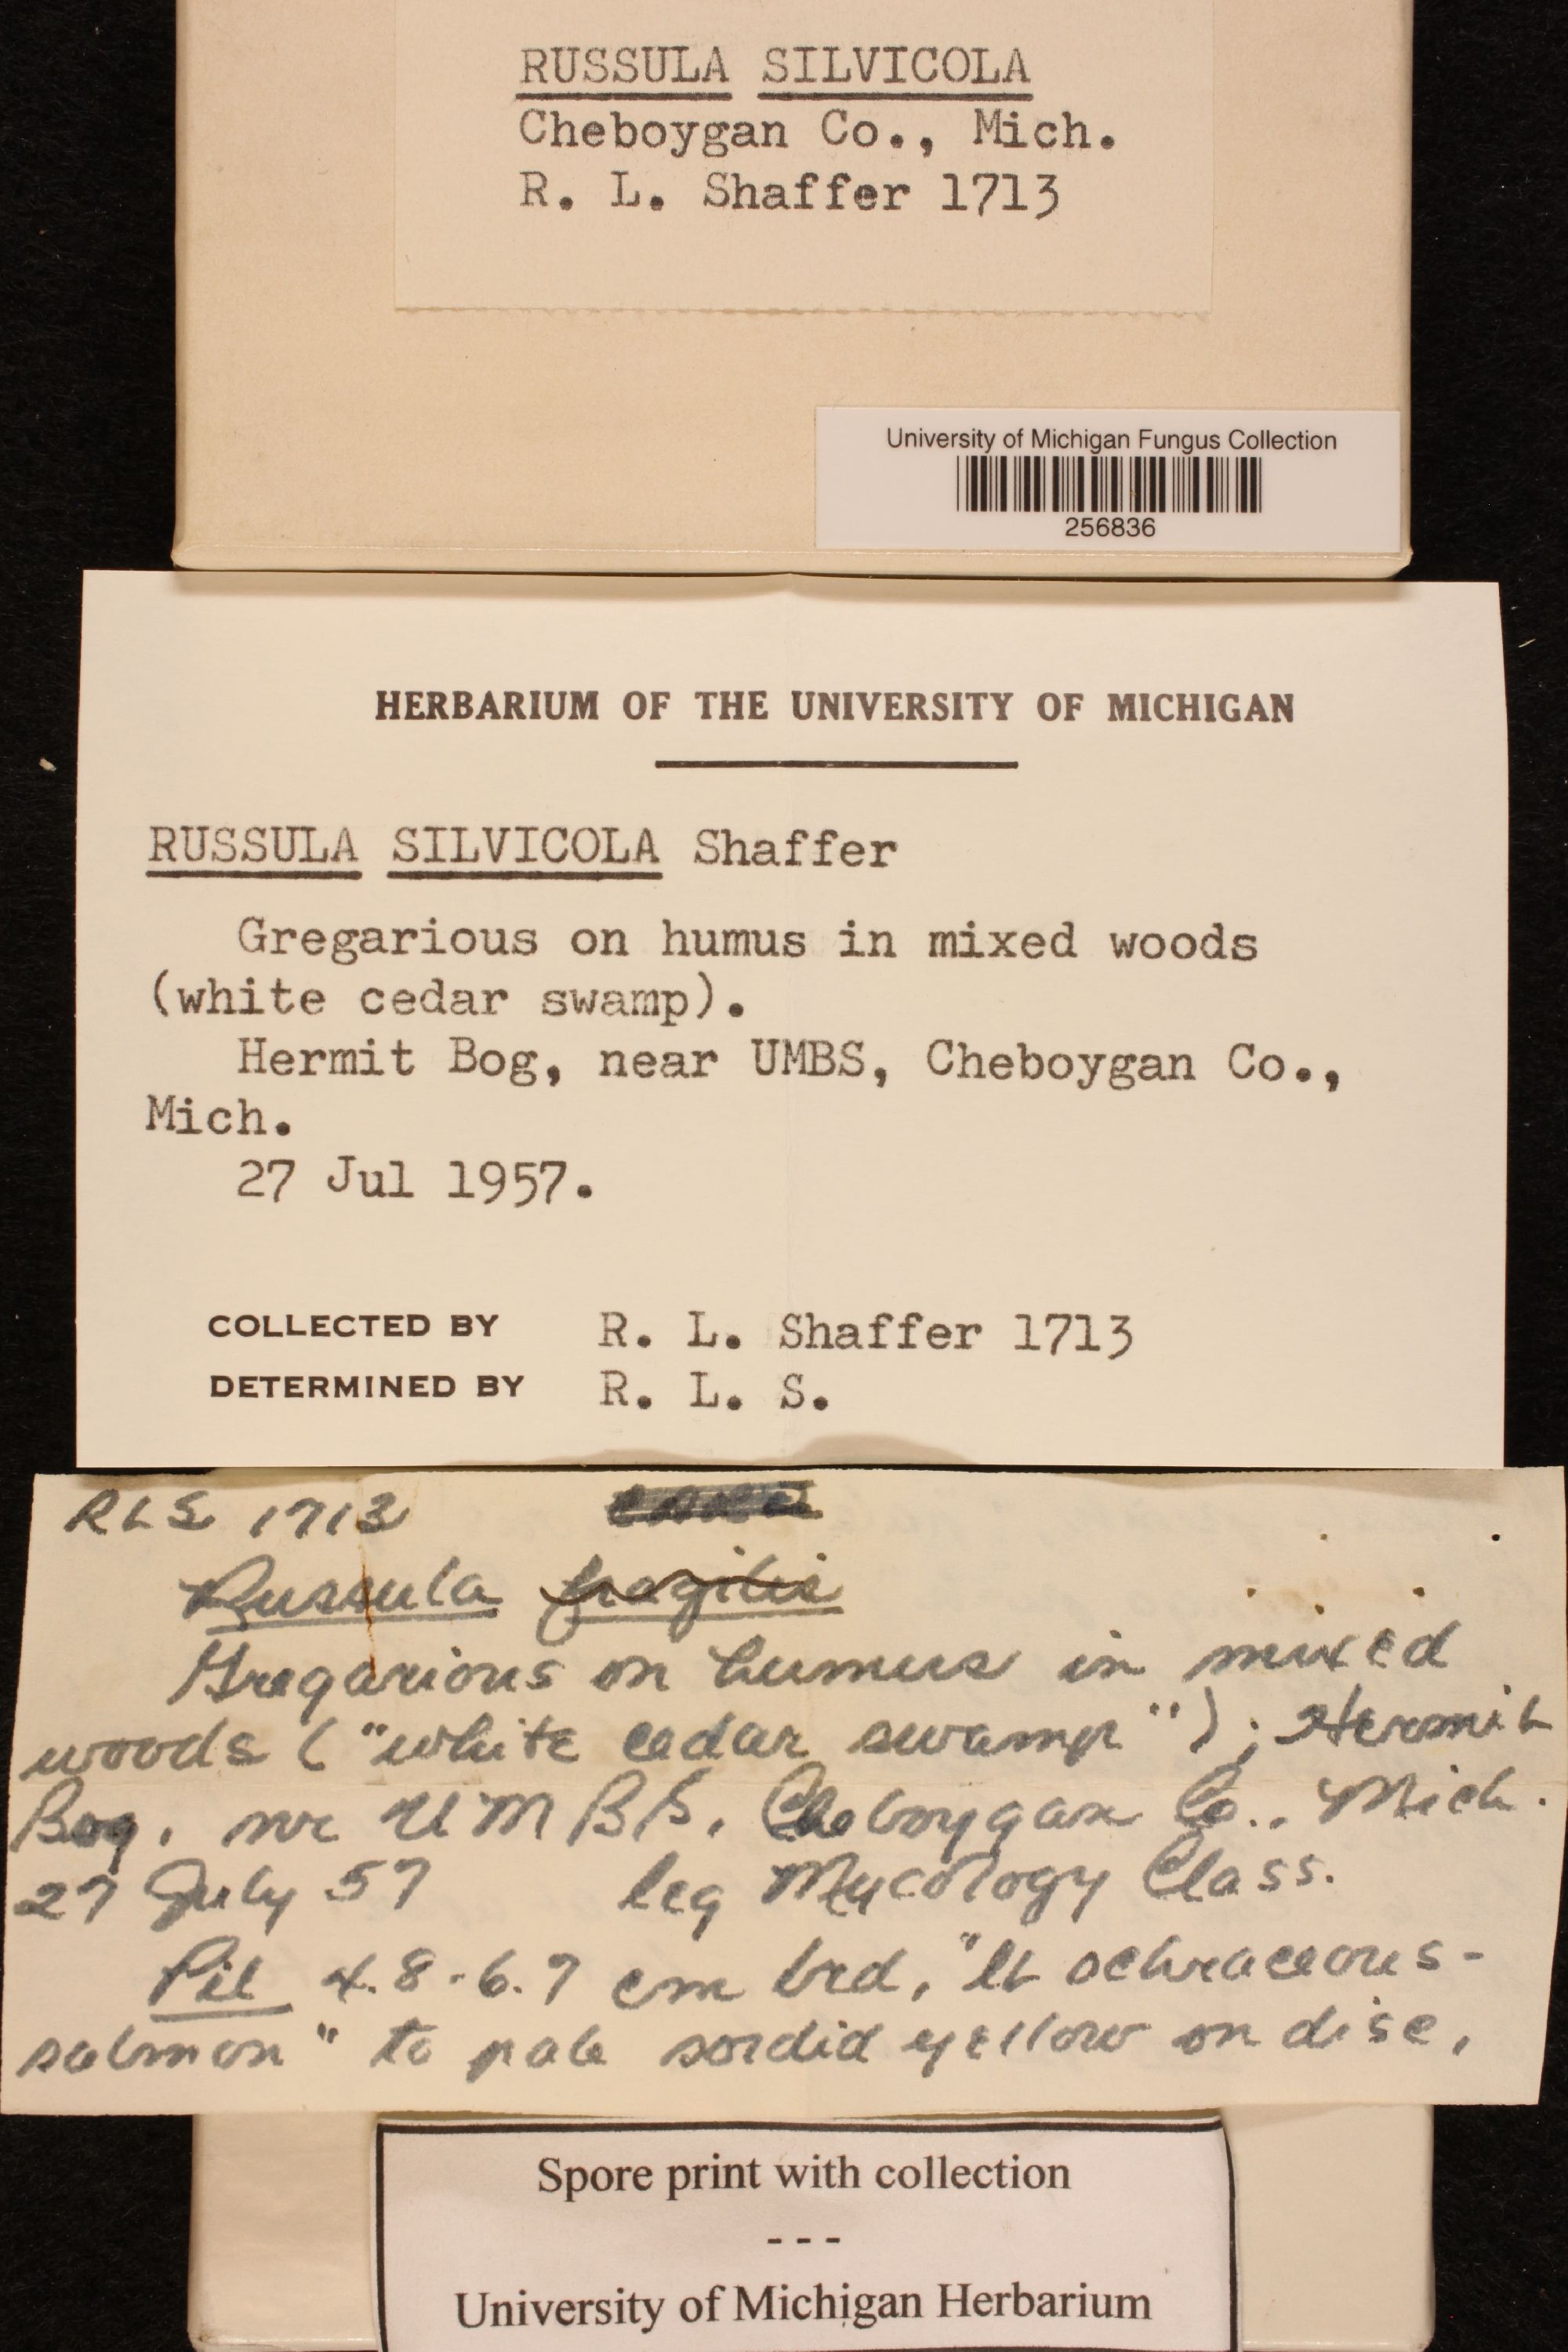 RUSSULA SILVICOLA
Cheboygan Co., Mich.
R. L. Shaffer 1713
University of Michigan Fungus Collection
256836
HERBARIUM OF THE UNIVERSITY OF MICHIGAN
RUSSULA SILVICOLA Shaffer
Gregarious on humus in mixed woods
(white cedar swamp).
Hermit Bog, near UMBS, Cheboygan Co.,
Mich.
27 Jul 1957.
COLLECTED BY R. L. Shaffer 1713
DETERMINED BY R. L. S.
RLS 1713
Russula fragilis
Gregarious on humus in mixed
woods ("white cedar swamp"); Hermit
Bog, nr UMBS, Cheboygan Co., Mich.
27 July 57 leg Mycology Class.
Pil 4.8-6.7 cm brd, "lt ochraceous-
salmon" to pale sordid yellow on disc,
Spore print with collection
---
University of Michigan Herbarium